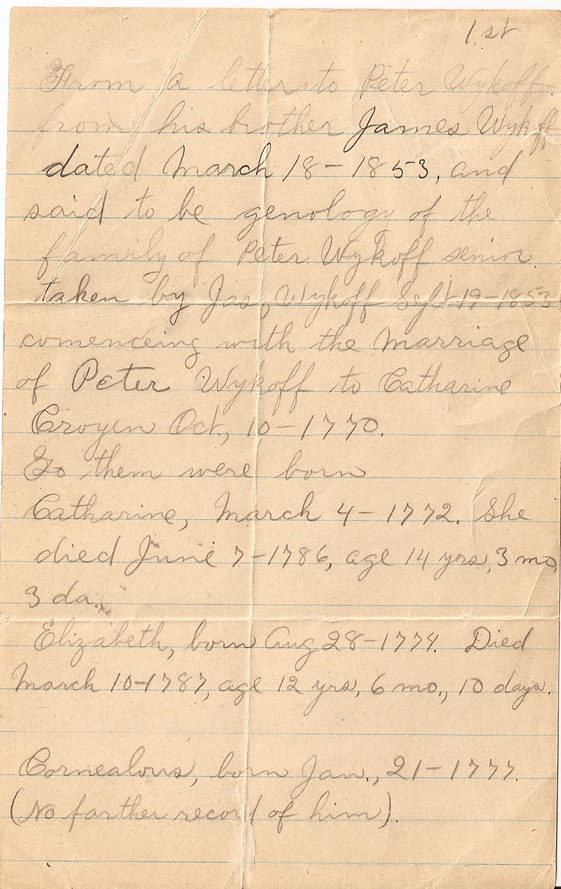 1 st
From a letter to Peter Wykoff
from his brother James Wykoff
dated March 18-1853, and
said to be genology of the
family of Peter Wykoff senior
taken by Jas, Wykoff Sept. 19-1853
comenceing with the Marriage
of Peter Wykoff to Catharine
Croyen Oct, 10-1770.
To them were born
Catharine, March 4-1772. She
died June 7-1786, age 14 yrs, 3 mo
3 da.
Elizabeth, born Aug 28-1774. Died
March 10-1787, age 12 yrs, 6 mo., 10 days.
Cornealous, born Jan., 21-1777.
(No farther record of him).